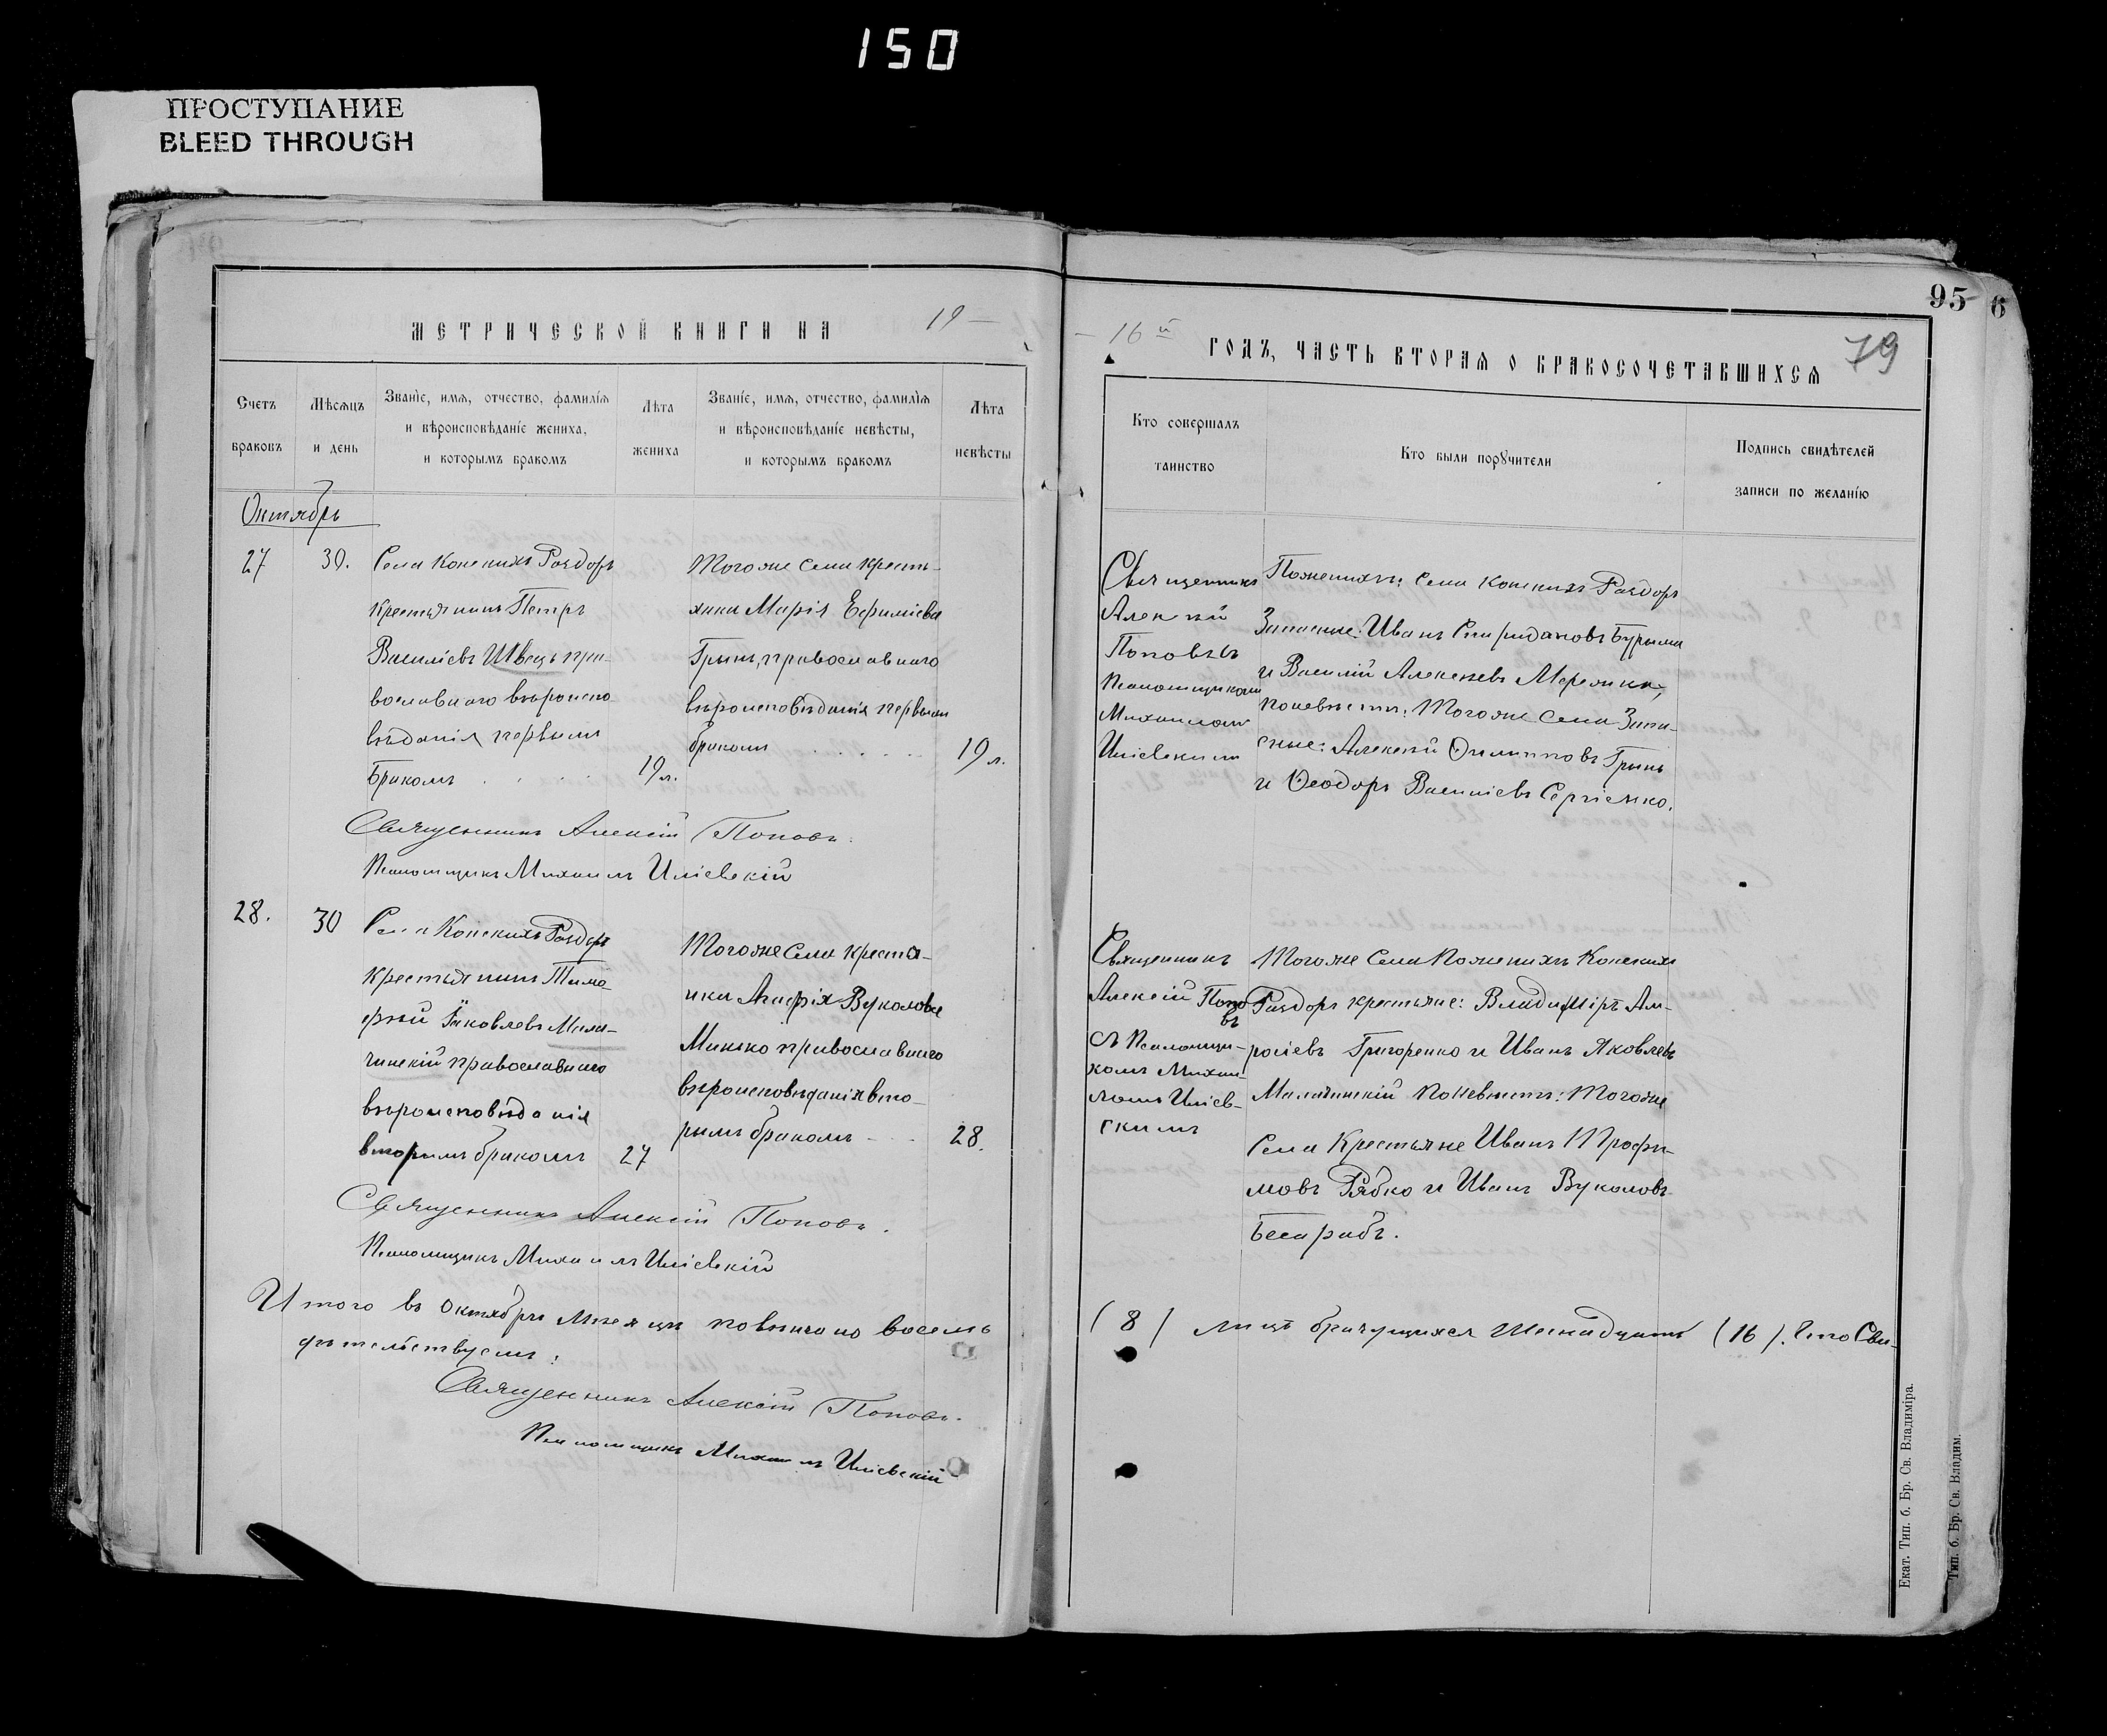 150
ПРОСТУПАНИЕ
BLEED THROUGH
95
6
79
МЕТРИЧЕСКОЙ КНИГИ НА 19 —
— 16й ГОДЪ, ЧАСТЬ ВТОРАЯ О БРАКОСОЧЕТАВШИХСЯ
Счетъ
браковъ
Мѣсяцъ
и день
Званіе, имя, отчество, фамилія
и вѣроисповѣданіе жениха,
и которымъ бракомъ
Лѣта
жениха
Званіе, имя, отчество, фамилія
и вѣроисповѣданіе невѣсты,
и которымъ бракомъ
Лѣта
невѣсты
Кто совершалъ
таинство
Кто были поручители
Подпись свидѣтелей
записи по желанію
Октябрь
27
30.
Села Конскихъ Раздоръ
крестьянинъ Петръ
Василіевъ Швецъ пра-
вославнаго вѣроиспо
вѣданія первымъ
бракомъ
19 л.
Тогоже села кресть-
янка Марія Ефиміева
Гринь, православнаго
вѣроисповѣданія первымъ
бракомъ
19 л.
Священникъ
Алексій
Поповъ съ
Псаломщикомъ
Михаиломъ
Иліевскимъ
По женихѣ: села Конскихъ Раздоръ
Запасные: Иванъ Спиридоновъ Бурыма
и Василій Алексѣевъ Мережка,
по невѣстѣ: Тогоже села Запа-
сные: Алексѣй Филиповъ Гринь
и Ѳеодоръ Василіевъ Сергіенко.
Священникъ Алексій Поповъ.
Псаломщикъ Михаилъ Иліевскій
28.
30
Села Конскихъ Раздоръ
крестьянинъ Тимо-
фей Яковлевъ Мала-
чинскій православнаго
вѣроисповѣданія
вторымъ бракомъ
27
Тогоже села крестья-
нка Агафія Вуколова
Минько православнаго
вѣроисповѣданія вто-
рымъ бракомъ
28.
Священникъ
Алексій Попо
въ
съ Псаломщи-
комъ Михаи-
ломъ Иліев-
скимъ
Тогоже Села По женихѣ Конскихъ
Раздоръ крестьяне: Владиміръ Ам-
росіевъ Григоренко и Иванъ Яковлевъ
Малачинскій По невѣстѣ: Тогоже
Села Крестьяне Иванъ Трофи-
мовъ Рябко и Иванъ Вуколовъ
Бесарабъ.
Священникъ Алексій Поповъ.
Псаломщикъ Михаилъ Иліевскій
Итого въ октябрѣ мѣсяцѣ повѣнчано восемь
(8) лицъ брачущихся шеснадцать (16). Что Сви-
дѣтельствуемъ:
Священникъ Алексій Поповъ.
Псаломщикъ Михаилъ Иліевскій
Екат. Тип. б. Бр. Св. Владиміра.
Тип. б. Бр. Св. Владим.